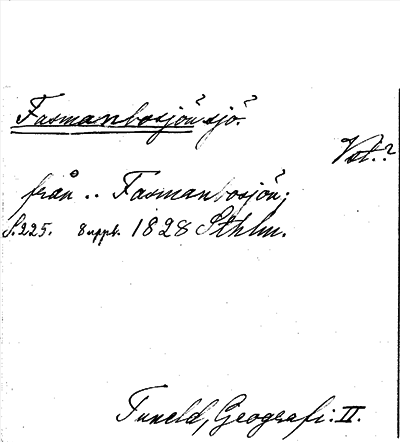 Fasmanbosjön? sjö.?
Vst.?
från .. Fasmanbosjön?;
S. 225. 8 uppl. 1828 Sthlm.
Tuneld, Geografi: II.